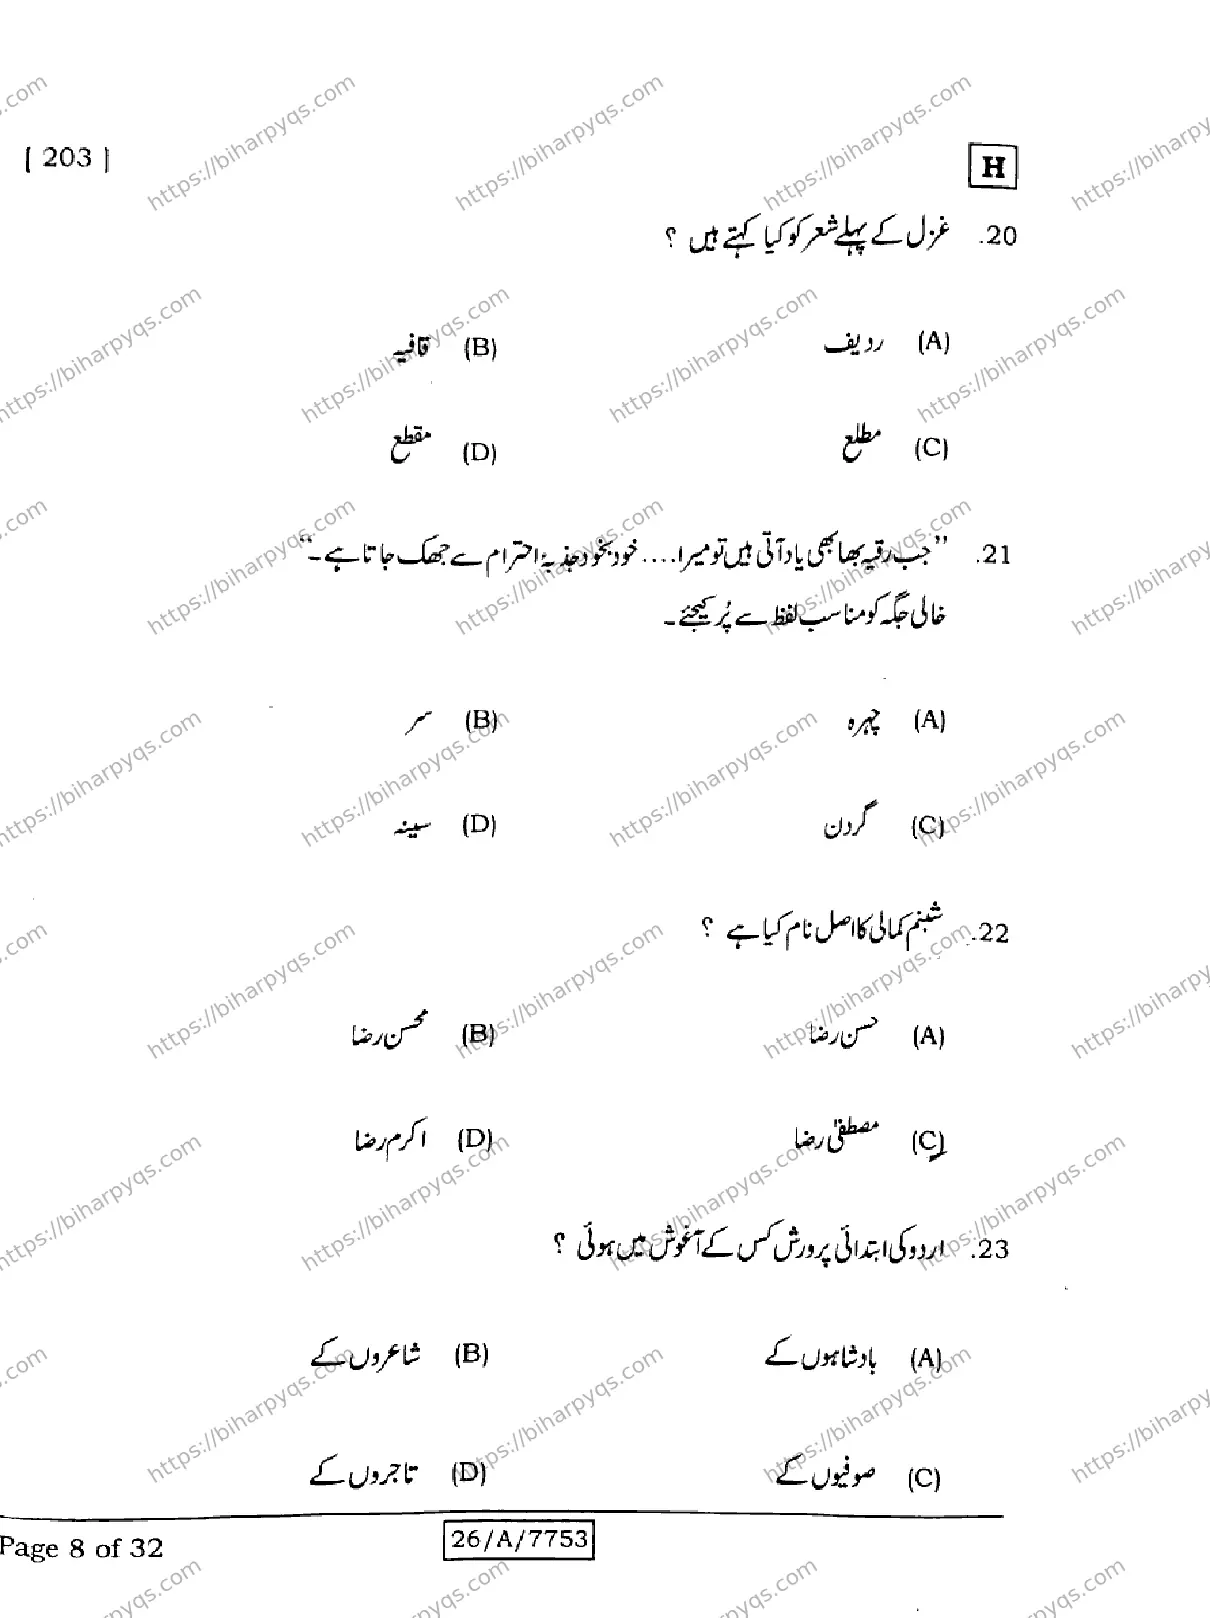 [ 203 ]
H
20. غزل کے پہلے شعر کو کیا کہتے ہیں ؟
(A) ردیف (B) قافیہ
(C) مطلع (D) مقطع
21. ”جب رقیہ بھابھی یاد آتی ہیں تو میرا .... خود بخود جذبۂ احترام سے جھک جاتا ہے۔“
خالی جگہ کو مناسب لفظ سے پُر کیجئے۔
(A) چہرہ (B) سر
(C) گردن (D) سینہ
22. شبنم کمالی کا اصل نام کیا ہے ؟
(A) حسن رضا (B) محسن رضا
(C) مصطفیٰ رضا (D) اکرم رضا
23. اردو کی ابتدائی پرورش کس کے آغوش میں ہوئی ؟
(A) بادشاہوں کے (B) شاعروں کے
(C) صوفیوں کے (D) تاجروں کے
Page 8 of 32
26/A/7753
https://biharpyqs.com